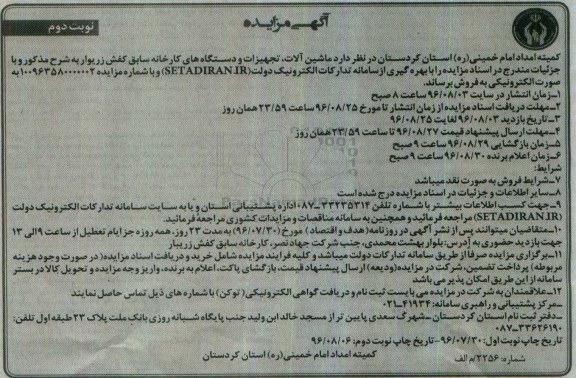 آگهی مزایده
نوبت دوم
کمیته امداد امام خمینی(ره) استان کردستان در نظر دارد ماشین آلات، تجهیزات و دستگاه های کارخانه سابق کفش زریوار به شرح مذکور و با
جزئیات مندرج در اسناد مزایده را با بهره گیری از سامانه تدارکات الکترونیک دولت(SETADIRAN.IR) و با شماره مزایده ۱۰۰۹۶۳۵۸۰۰۰۰۰۲ به
صورت الکترونیکی به فروش برساند.
۱-زمان انتشار در سایت ۹۶/۰۸/۰۳ ساعت ۸ صبح
۲-مهلت دریافت اسناد مزایده از زمان انتشار تا مورخ ۹۶/۰۸/۲۵ ساعت ۲۳/۵۹ همان روز
۳-تاریخ بازدید ۹۶/۰۸/۰۳ لغایت ۹۶/۰۸/۲۵
۴-مهلت ارسال پیشنهاد قیمت ۹۶/۰۸/۲۷ تا ساعت ۲۳/۵۹ همان روز
۵-زمان بازگشایی ۹۶/۰۸/۲۹ ساعت ۹ صبح
۶-زمان اعلام برنده ۹۶/۰۸/۳۰ ساعت ۹ صبح
شرایط:
۷-شرایط فروش به صورت نقد میباشد
۸-سایر اطلاعات و جزئیات در اسناد مزایده درج شده است
۹-جهت کسب اطلاعات بیشتر با شماره تلفن ۳۳۲۳۵۳۱۲-۰۸۷ اداره پشتیبانی استان و یا به سایت سامانه تدارکات الکترونیک دولت
(SETADIRAN.IR) مراجعه فرمائید و همچنین به سامانه مناقصات و مزایدات کشوری مراجعه فرمائید.
۱۰-متقاضیان میتوانند پس از نشر آگهی در روزنامه (هدف و اقتصاد) مورخ (۹۶/۰۷/۳۰) به مدت ۲۳ روز، همه روزه جز ایام تعطیل از ساعت ۹ الی ۱۳
جهت بازدید حضوری به آدرس: بلوار بهشت محمدی، جنب شرکت جهاد نصر، کارخانه سابق کفش زریبار
۱۱-برگزاری مزایده صرفا از طریق سامانه تدارکات دولت میباشد و کلیه فرایند مزایده شامل خرید و دریافت اسناد مزایده( در صورت وجود هزینه
مربوطه) پرداخت تضمین، شرکت در مزایده(ودیعه) ارسال پیشنهاد قیمت، بازگشای پاکت، اعلام به برنده، واریز وجه مزایده و تحویل کالا در بستر
سامانه از این طریق امکان پذیر می باشد
۱۲-علاقمندان به شرکت در مزایده می بایست ثبت نام و دریافت گواهی الکترونیکی( توکن) با شماره های ذیل تماس حاصل نمایند
-مرکز پشتیبانی و راهبری سامانه: ۴۱۹۳۴-۰۲۱
-دفتر ثبت نام استان کردستان-شهرک سعدی پایین تر از مسجد خالد ابن ولید جنب پایگاه شبانه روزی بانک ملت پلاک ۲۳ طبقه اول تلفن:
۳۳۶۲۶۱۹۰-۰۸۷
تاریخ چاپ نوبت اول: ۹۶/۰۷/۳۰-تاریخ چاپ نوبت دوم: ۹۶/۰۸/۰۶
کمیته امداد امام خمینی(ره) استان کردستان
شماره: ۲۲۵۶/م الف